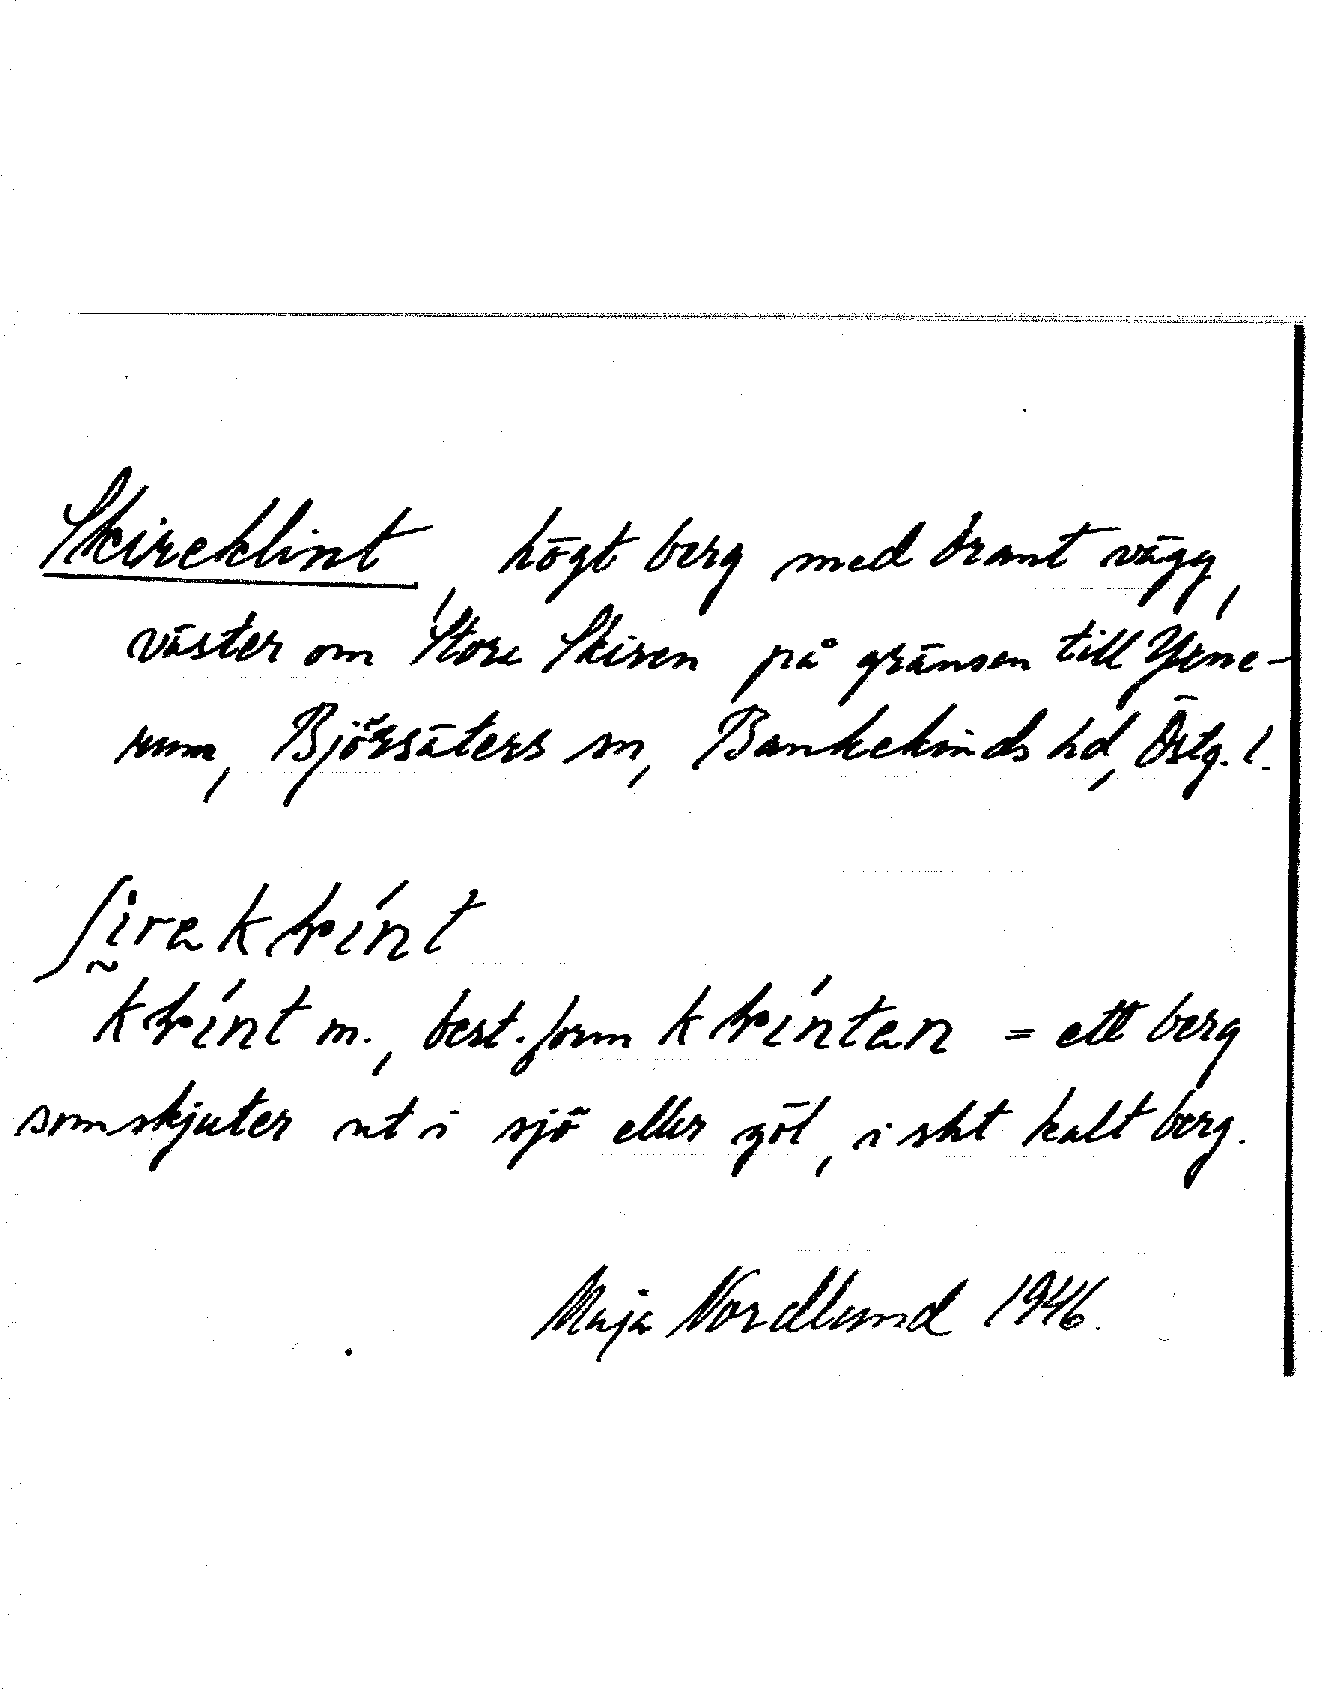 Skireklint, högt berg med brant vägg,
väster om Store Skiren på gränsen till Yxne-
rum, Björsäters sn, Bankekinds hd, Östg. l.
ʃirak
m., best. form = ett berg
som skjuter ut i sjö eller göl, i sht kalt berg.
Maja Nordlund 1946.